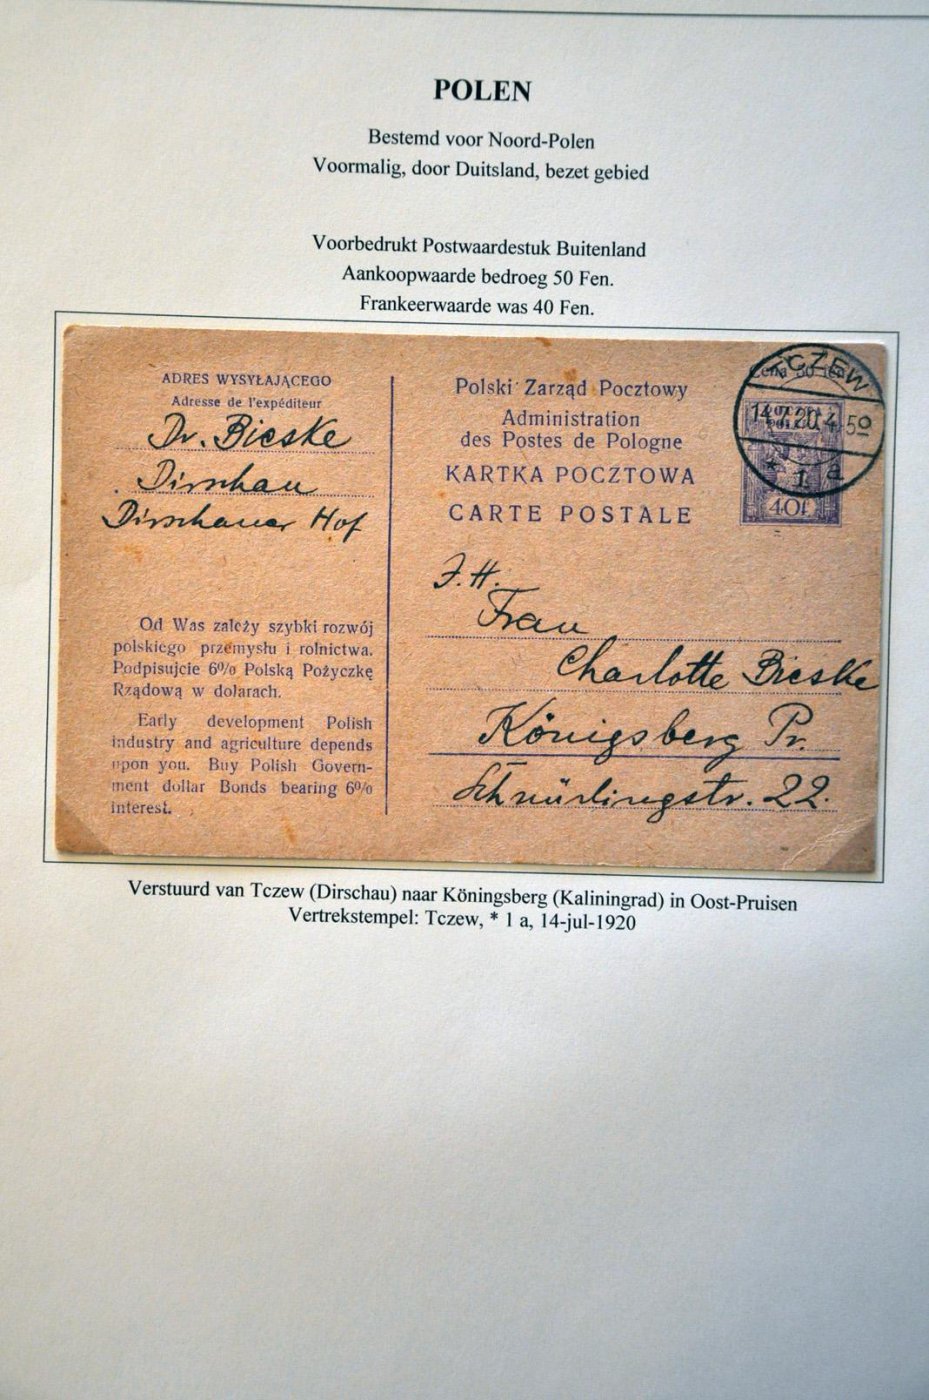 POLEN
Bestemd voor Noord-Polen
Voormalig, door Duitsland, bezet gebied
Voorbedrukt Postwaardestuk Buitenland
Aankoopwaarde bedroeg 50 Fen.
Frankeerwaarde was 40 Fen.
ADRES WYSYŁAJĄCEGO
Adresse de l'expéditeur
Dr. Bieske
Dirschau
Dirschauer Hof
Od Was zależy szybki rozwój
polskiego przemysłu i rolnictwa.
Podpisujcie 6% Polską Pożyczkę
Rządową w dolarach.
Early development Polish
industry and agriculture depends
upon you. Buy Polish Govern-
ment dollar Bonds bearing 6%
interest.
Polski Zarząd Pocztowy
Administration
des Postes de Pologne
KARTKA POCZTOWA
CARTE POSTALE
Cena 50 fen
TCZEW
14.7.20.4-5⁰
* 1 a
40f
J. H.
Frau
Charlotte Bieske
Königsberg Pr.
Schnürlingstr. 22.
Verstuurd van Tczew (Dirschau) naar Köningsberg (Kaliningrad) in Oost-Pruisen
Vertrekstempel: Tczew, * 1 a, 14-jul-1920